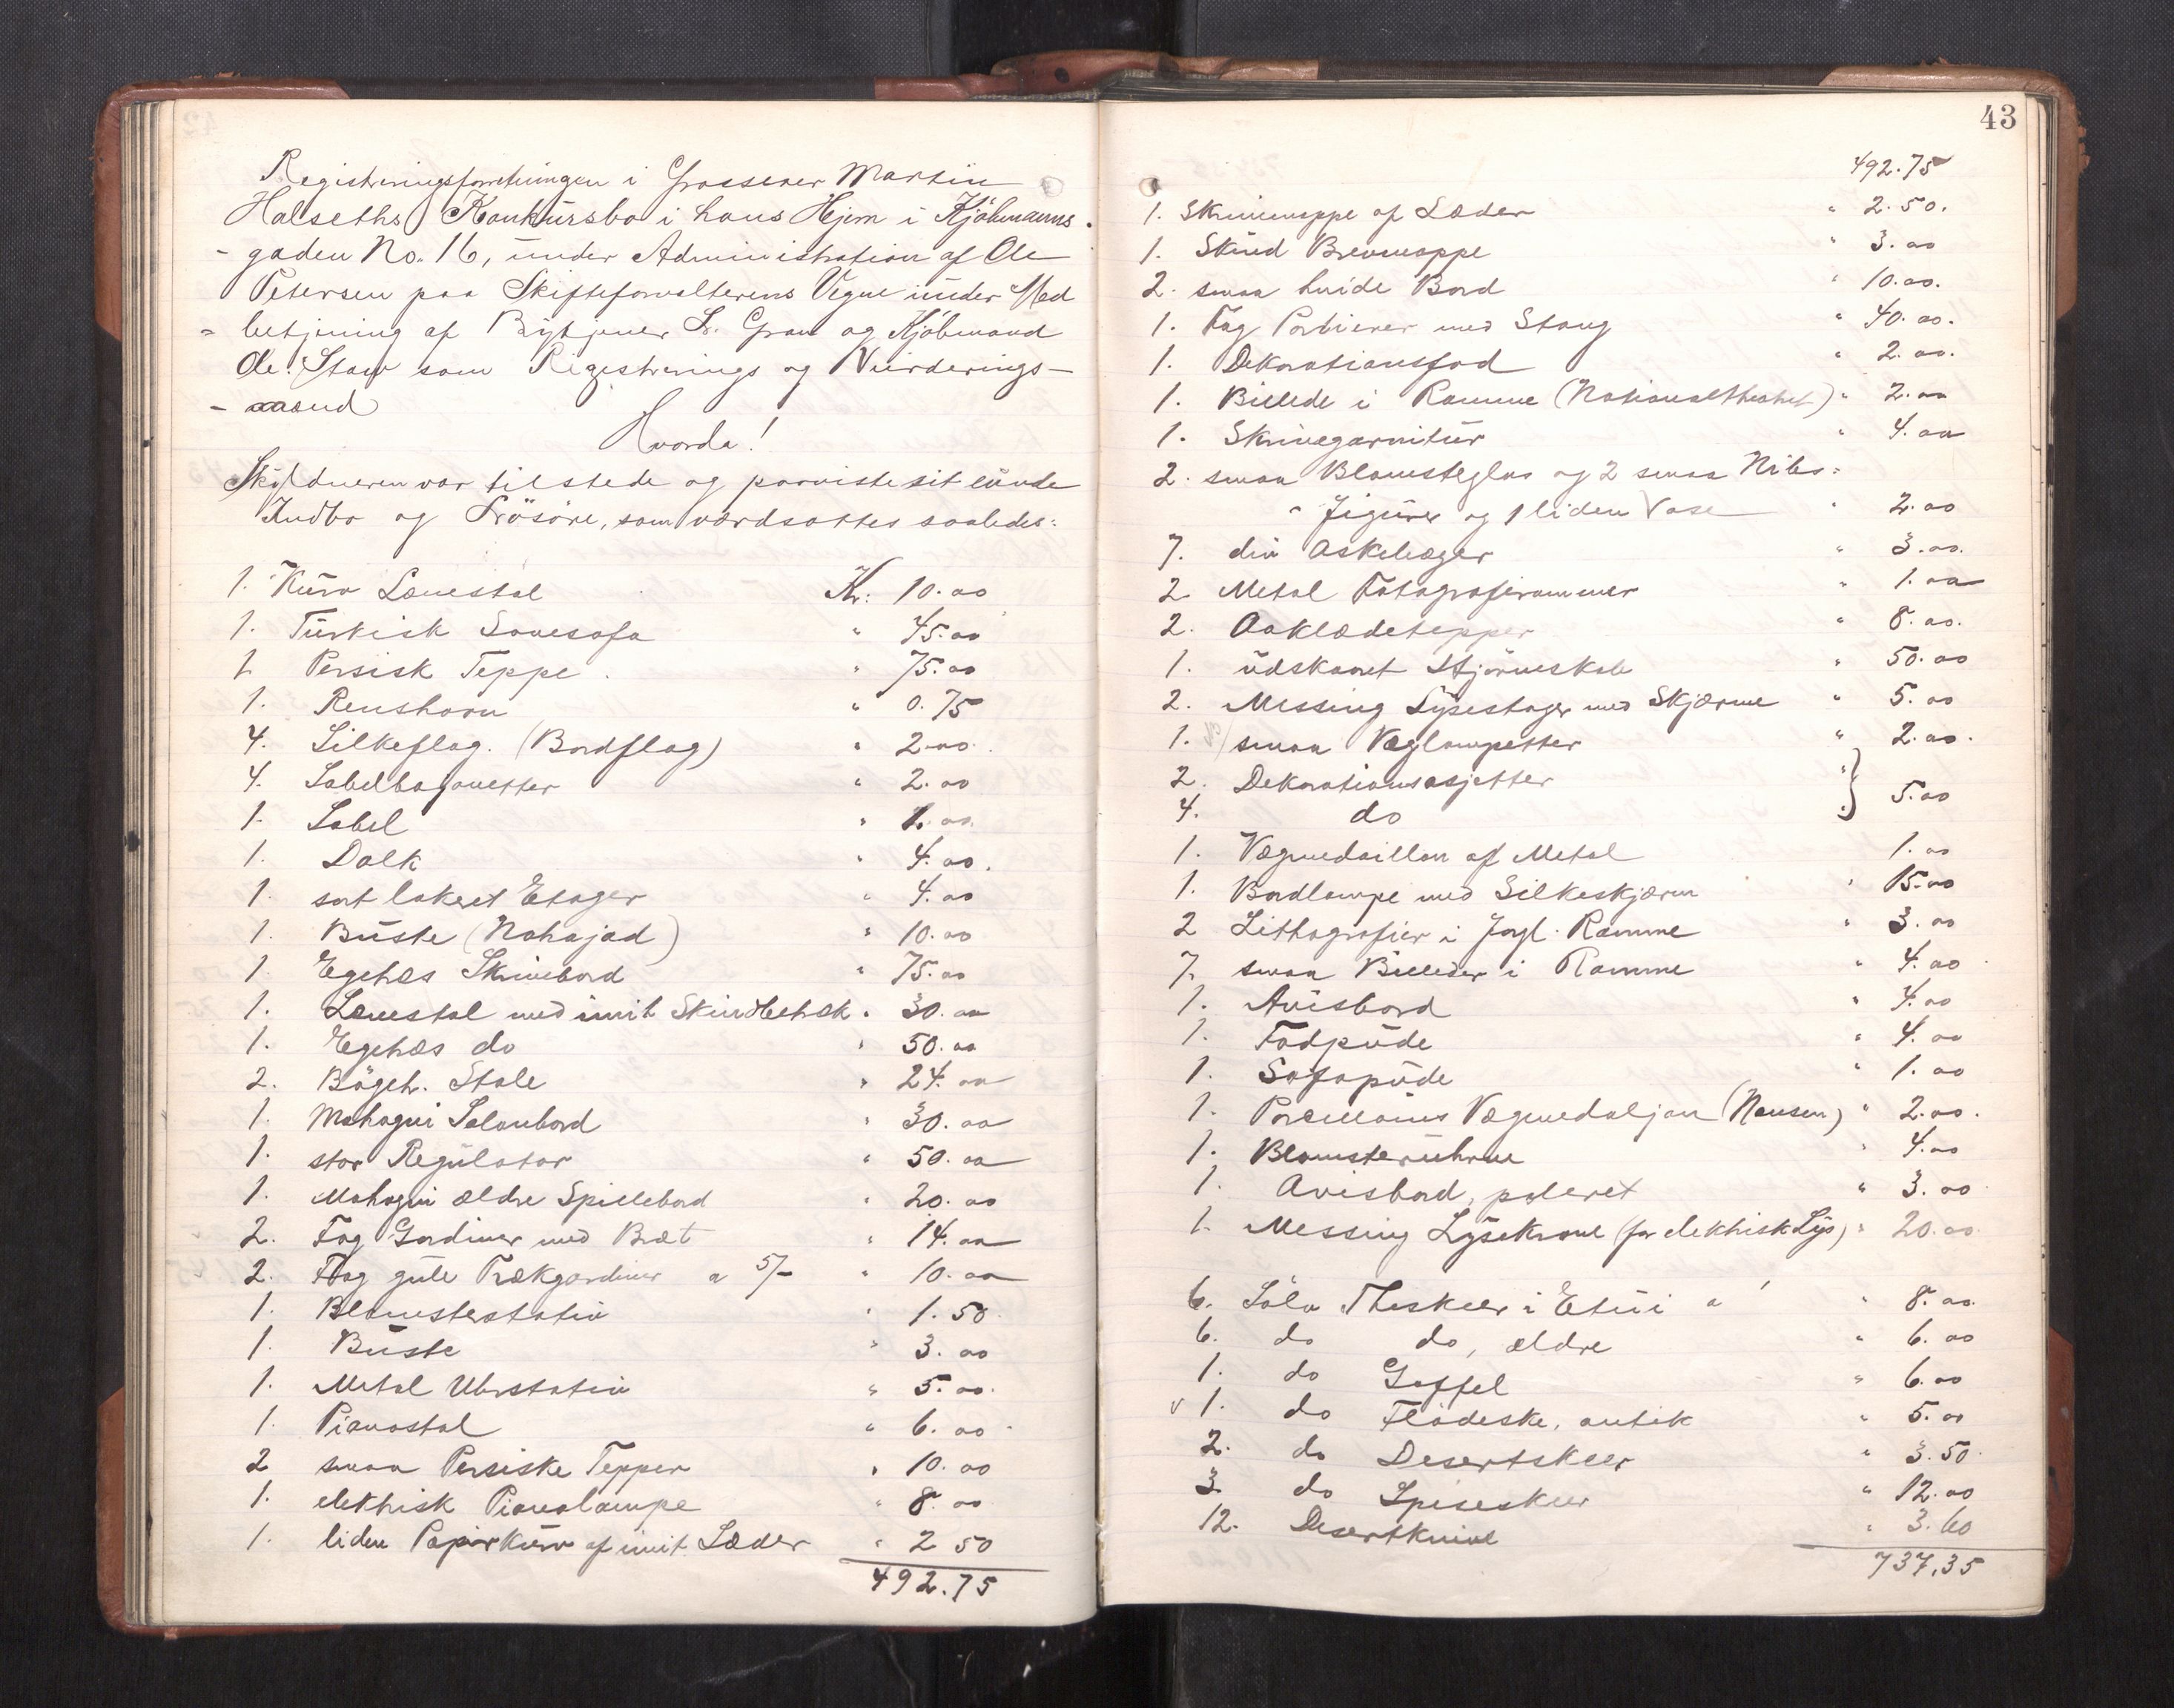 Registreringsforretningen i Grosserer Martin
Halseths Konkursbo i hans Hjem i Kjöbmanns-
- gaden No. 16, under Administration af Ole
Petersen paa Skifteforvalterens Vegne under Med
- betjening af Bytjener L. Gran og Kjöbmand
Ole Stav som Registrerings og Vurderings-
- mænd
Hvorda!
Skyldneren var tilstede og paaviste sit eiende
Indbo og Lösöre, som værdsattes saaledes:
1. Kurv Lænestol Kr: 10.00
1. Turkisk Sovesofa " 45.00
1. Persisk Teppe " 75.00
1. Renshorn " 0.75
4. Silkeflag. (Bordflag) " 2.00
4. Sabelbajonetter " 2.00
1. Sabel " 1.00
1. Dolk " 4.00
1. sort lakert Etager " 4.00
1. Büste (Nohajad) " 10.00
1. Egetræs Skrivebord " 75.00
1. Lænestol med imit Skindbetræk " 30.00
1. Egetræs do " 50.00
2. Bögetr. Stole " 24.00
1. Mahogni Salonbord " 30.00
1. stor Regulator " 50.00
1. Mahogni ældre Spillebord " 20.00
2. Fag Gardiner med Bræt " 14.00
2. Fag gule Trækgardiner a 5/- " 10.00
1. Blomsterstativ " 1.50
1. Büste " 3.00
1. Metal Uhrstativ " 5.00
1. Pianostol " 6.00
2 smaa Persiske Tepper " 10.00
1. elektrisk Pianolampe " 8.00
1. liden Papirkurv af imit. Læder " 2 50
492.75
43
492.75
1. Skrivemappe af Læder " 2.50.
1. Skind Brevmappe " 3.00
2. smaa hvide Bord " 10.00.
1. Fag Portierer med Stang " 40.00.
1. Dekorationsfad " 2.00.
1. Billede i Ramme (Nationaltheatret) " 2.00
1. Skrivegarnitur " 4.00
2. smaa Blomsterglas og 2 smaa Nibs-
- figurer og 1 liden Vase " 2.00
7. div Askebæger " 3.00.
2. Metal Fotografirammer " 1.00
2. Aaklædetepper " 8.00.
1. udskaaret Hjörneskab " 50.00
2. Messing Lysestager med Skjærme " 5.00
1. smaa Væglampetter " 2.00.
2. Dekorationsasjetter " }
4. do } 5.00
1. Vægmedaillon af Metal 1.00
1. Bordlampe med Silkeskjærm " 15.00
2 Lithografier i forgl. Ramme " 3.00
7. smaa Billeder i Ramme " 4.00
1. Avisbord " 4.00
1. Fodpude " 4.00
1. Sofapude " 1.00
1. Porcellains Vægmedaljon (Nansen) " 2.00.
1. Blomsteruhrne " 4.00
1. Avisbord, poleret " 3.00
1. Messing Lysekrone (for elektrisk Lys) " 20.00
6. Sölv Theskeer i Etui a " 8.00.
6. do do, ældre " 6.00
1. do Gaffel " 6.00
v 1. do Flödeske, antik " 5.00
2. do Desertskeer " 3.50
3. do Spiseskeer " 12.00
12. Desertknive " 3.60
737,35